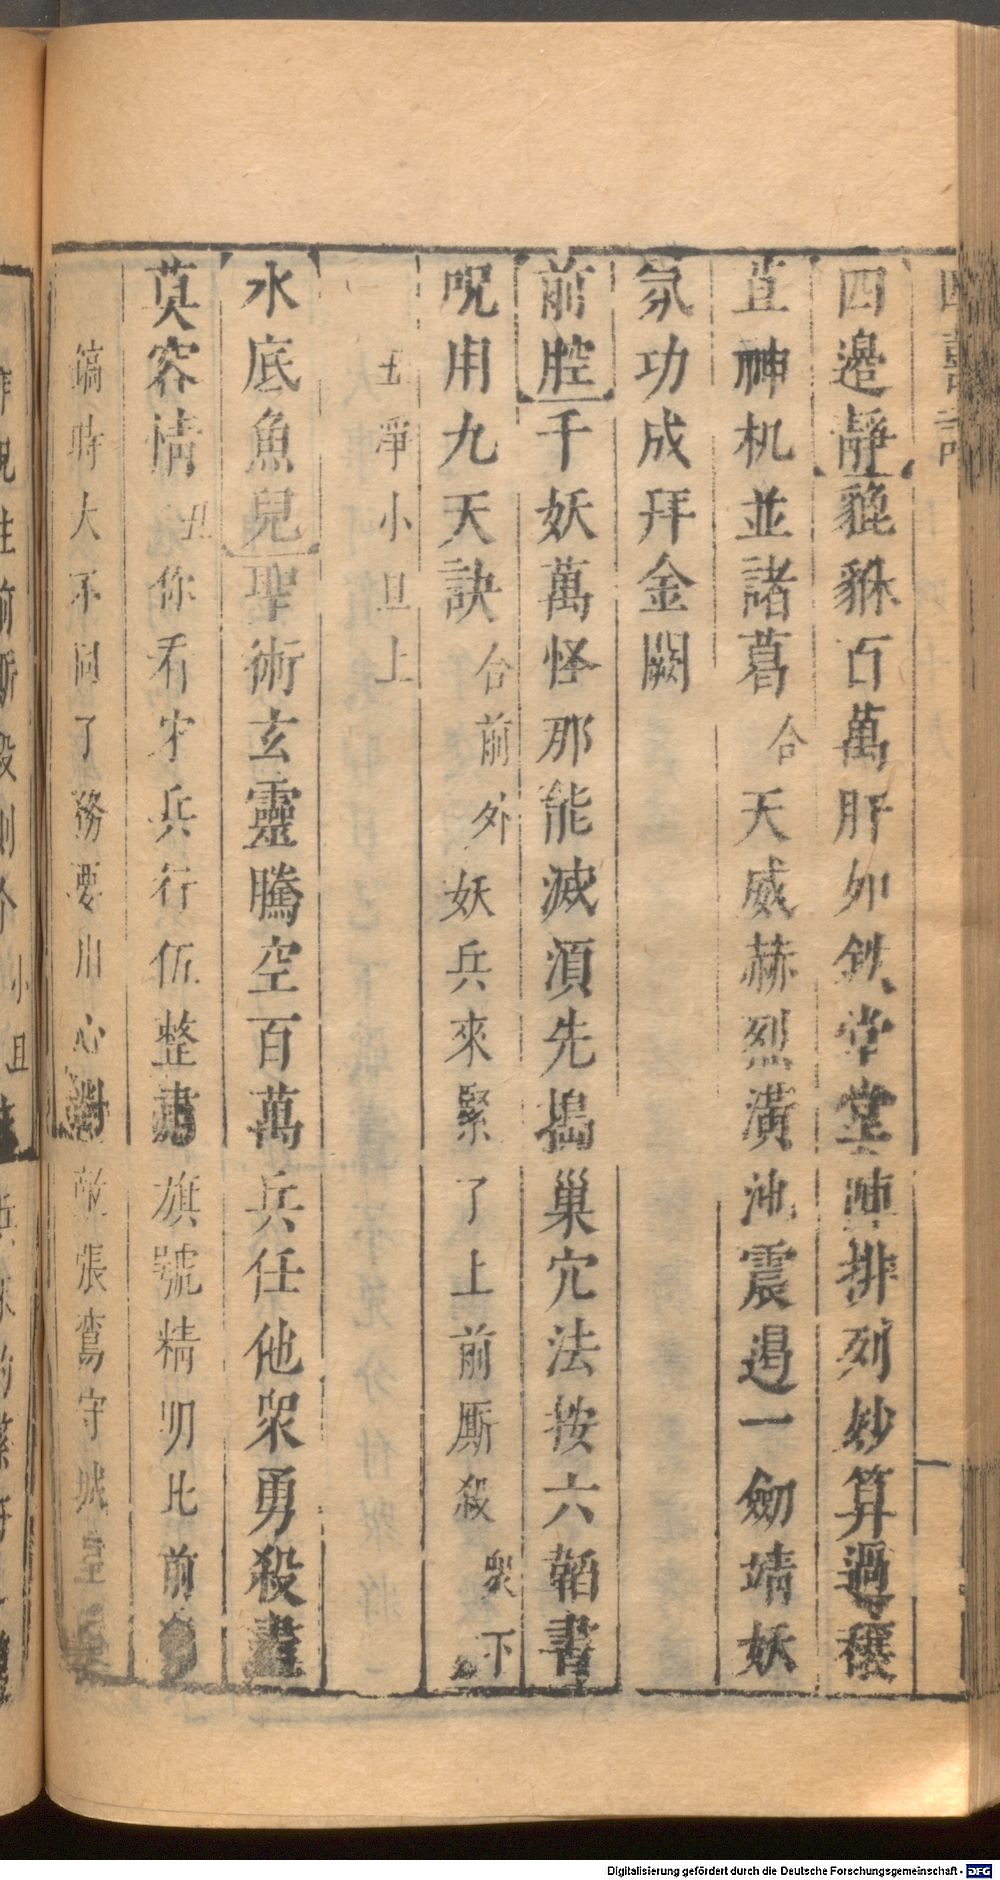 四邊靜貔貅百萬肝如鉄堂堂陣排列妙算過穰
苴神机並諸葛合天威赫烈潢池震遏一劒靖妖
氛功成拜金闕
前腔千妖萬怪那能滅湏先搗巢穴法按六韜書
呪用九天訣合前外妖兵來緊了上前厮殺衆下
丑淨小旦上
水底魚兒聖術玄靈騰空百萬兵任他衆勇殺盡
莫容情丑你看宋兵行伍整肅旗號精明比前
時大不同了務要用心對敵張鸞守城
Digitalisierung gefördert durch die Deutsche Forschungsgemeinschaft - DFG